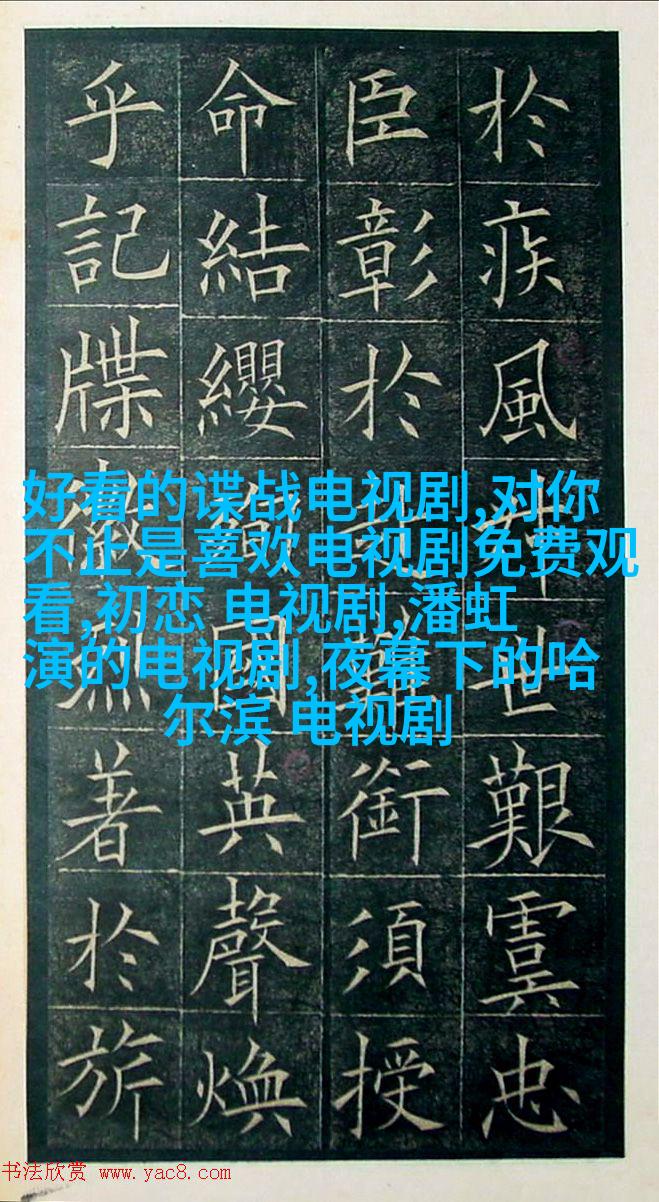 於疾風世艱虞忠
臣彰於難銜須授
命結纓國英聲煥
乎記牒烈著於旂
好看的谍战电视剧,对你
不止是喜欢电视剧免费观
看,初恋 电视剧,潘虹
演的电视剧,夜幕下的哈
尔滨 电视剧
书法欣赏 www.yac8.com